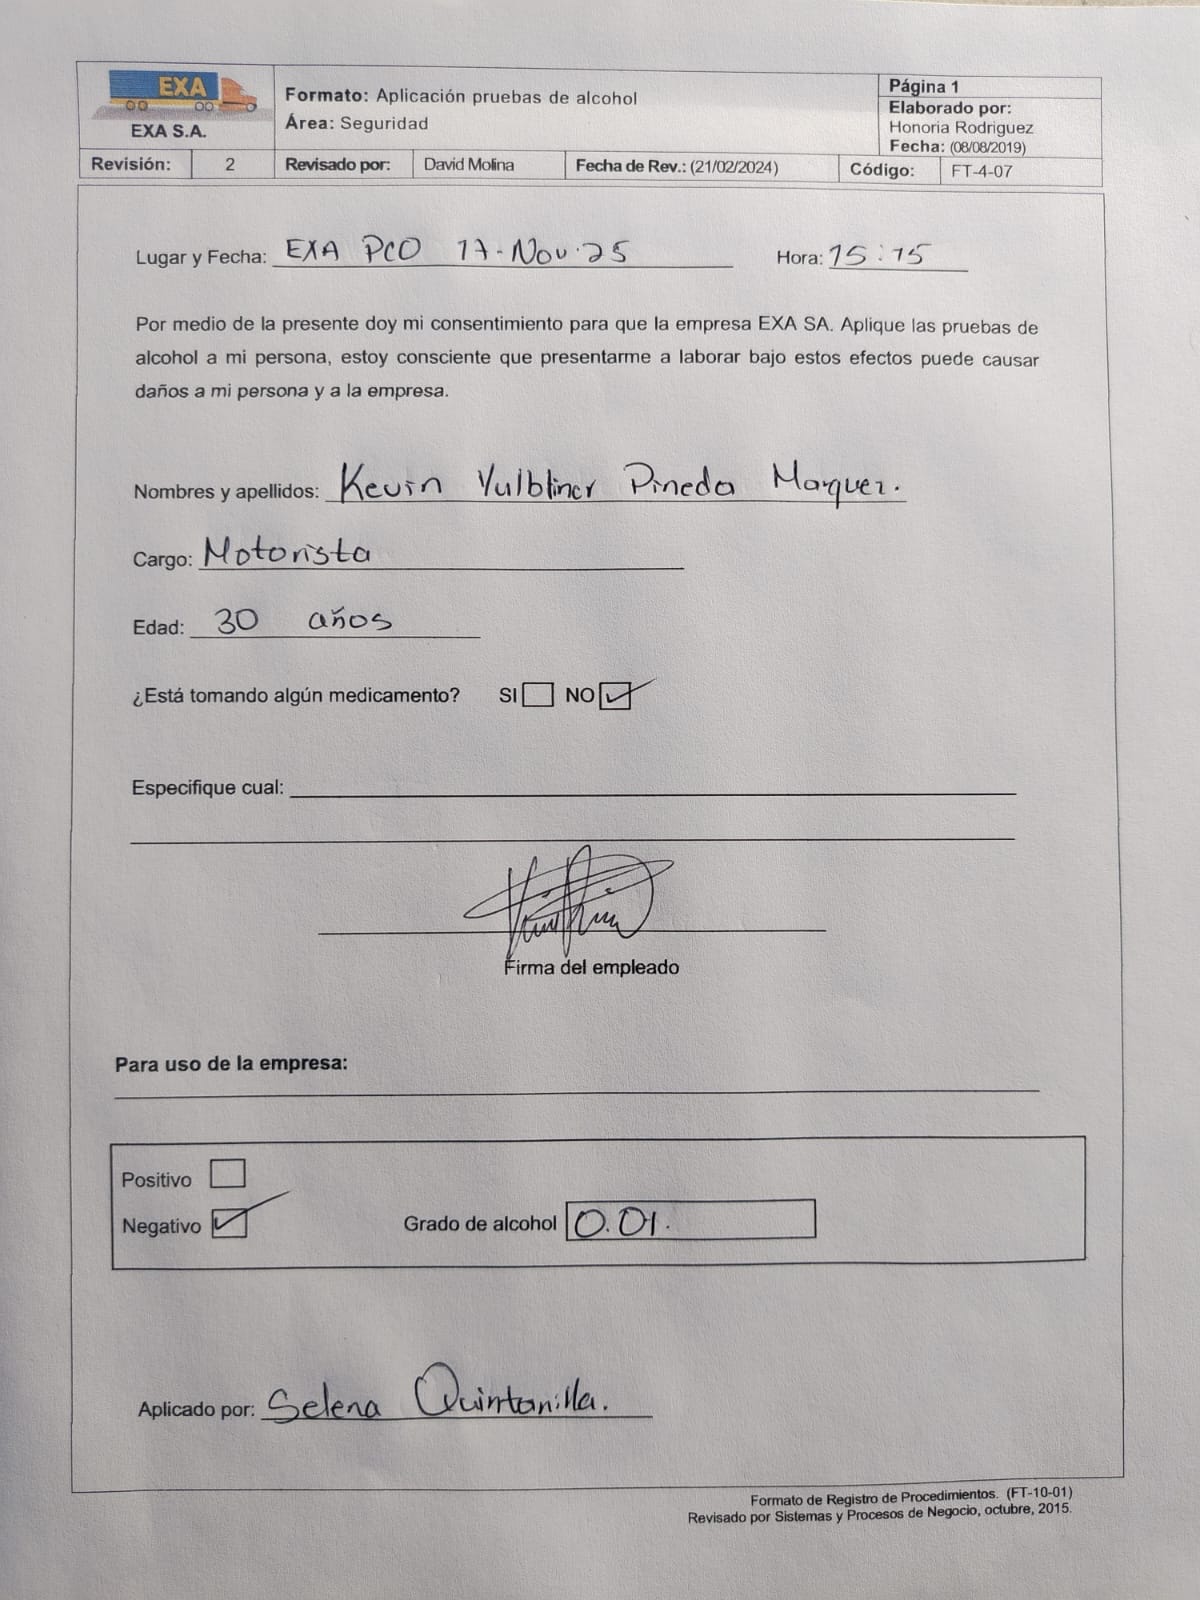 EXA
EXA S.A.
Formato: Aplicación pruebas de alcohol
Área: Seguridad
Página 1
Elaborado por:
Honoria Rodriguez
Fecha: (08/08/2019)
Revisión: 2 Revisado por: David Molina Fecha de Rev.: (21/02/2024) Código: FT-4-07
Lugar y Fecha: EXA PCO 17-Nov-25 Hora: 15:15
Por medio de la presente doy mi consentimiento para que la empresa EXA SA. Aplique las pruebas de
alcohol a mi persona, estoy consciente que presentarme a laborar bajo estos efectos puede causar
daños a mi persona y a la empresa.
Nombres y apellidos: Kevin Yulbliner Pineda Marquez.
Cargo: Motorista
Edad: 30 años
¿Está tomando algún medicamento? SI NO
Especifique cual:
Firma del empleado
Para uso de la empresa:
Positivo
Negativo Grado de alcohol 0.01.
Aplicado por: Selena Quintanilla.
Formato de Registro de Procedimientos. (FT-10-01)
Revisado por Sistemas y Procesos de Negocio, octubre, 2015.